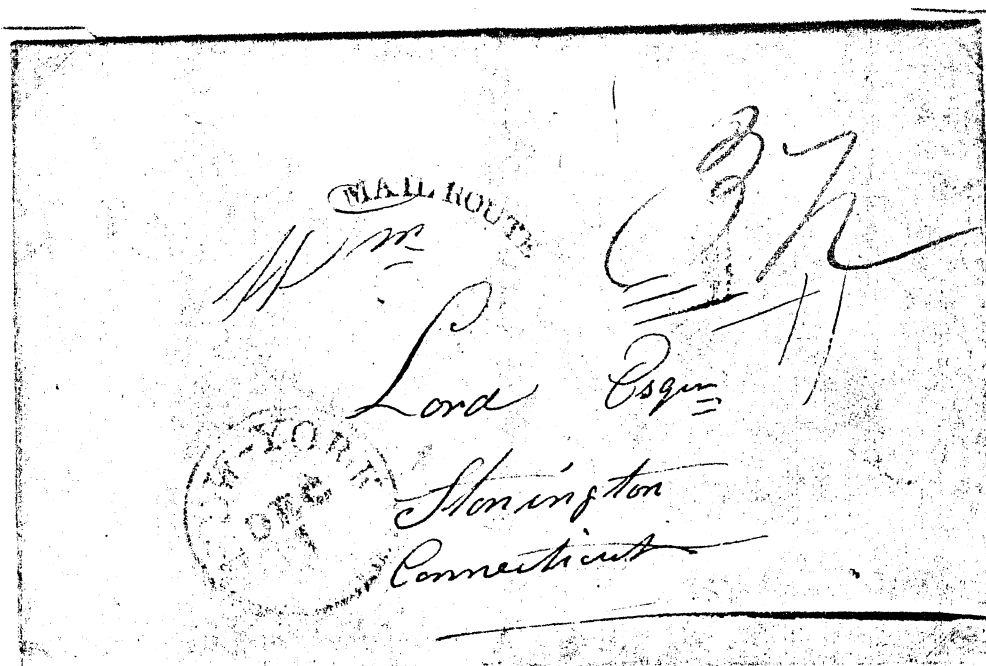 MAIL ROUTE
37½
Wm
Lord Esqr
NEW-YORK
DEC
1
Stonington
Connecticut